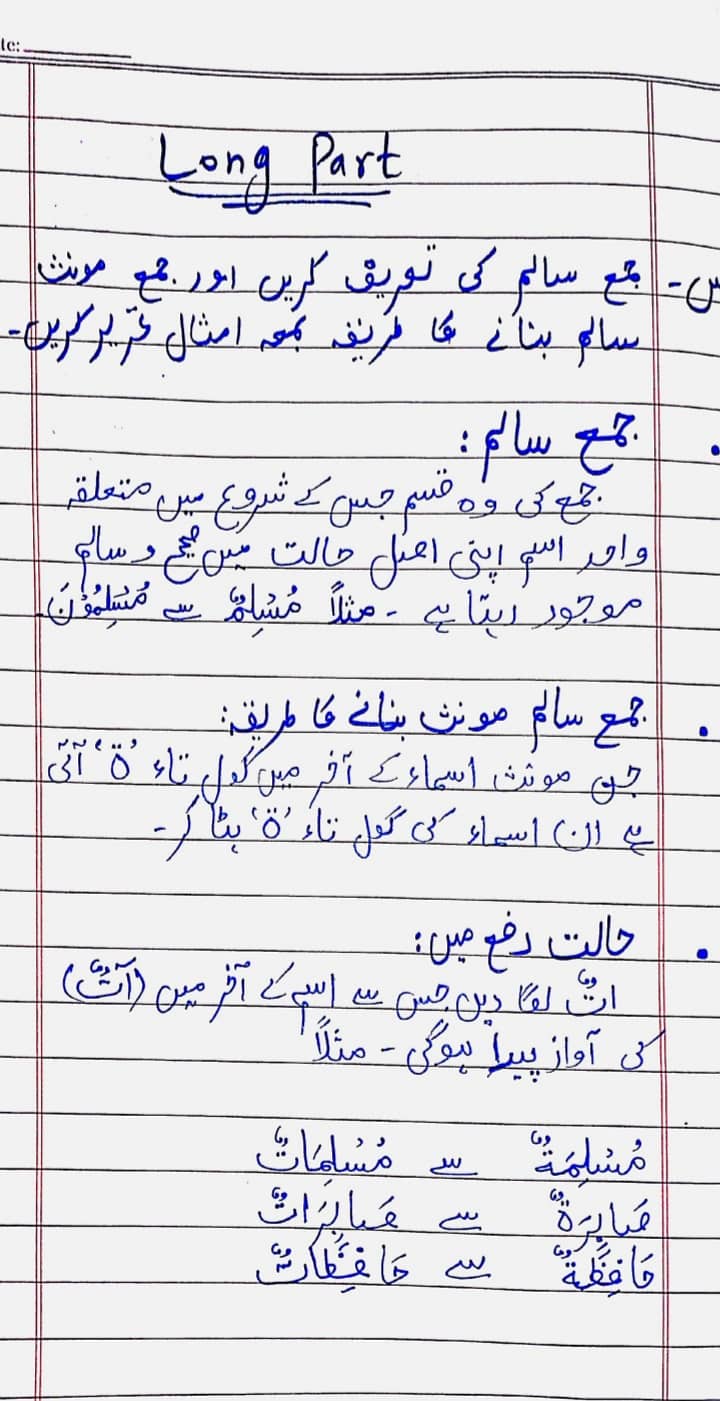 te:
Long Part
س- جمع سالم کی تعریف کریں اور جمع مونث
سالم بنانے کا طریقہ بمعہ امثال تحریر کریں-
جمع سالم:
جمع کی وہ قسم جس کے شروع میں متعلقہ
واحد اسم اپنی اصل حالت میں صحیح و سالم
موجود رہتا ہے - مثلاً مُسْلِمٌ سے مُسْلِمُوْنَ-
جمع سالم مونث بنانے کا طریقہ:
جن مونث اسماء کے آخر میں گول تاء 'ة' آتی
ہے ان اسماء کی گول تاء 'ة' ہٹا کر-
حالت رفع میں:
اتٌ لگا دیں جس سے اسم کے آخر میں (آتٌ)
کی آواز پیدا ہوگی - مثلاً
مُسْلِمَةٌ سے مُسْلِمَاتٌ
صَابِرَةٌ سے صَابِرَاتٌ
حَافِظَةٌ سے حَافِظَاتٌ